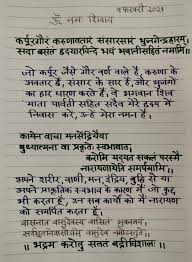 ९ फरवरी २०२१
ॐ नमः शिवाय
कर्पूरगौरं करुणावतारं संसारसारं भुजगेन्द्रहारम्।
सदा बसंतं हृदयारविन्दे भवं भवानीसहितं नमामि॥
जो कर्पूर जैसे गौर वर्ण वाले हैं, करुणा के
अवतार हैं, संसार के सार हैं, और भुजंगों
का हार धारण करते हैं, वे भगवान शिव
माता पार्वती सहित सदैव मेरे हृदय में
निवास करें, उन्हें मेरा नमन है।
कायेन वाचा मनसेंद्रियैर्वा
बुध्यात्मना वा प्रकृतेः स्वभावात्
करोमि यद्यत् सकलं परस्मै
नारायणायेति समर्पयामि॥
अपने शरीर, वाणी, मन, इंद्रिय, बुद्धि से या
अपने प्राकृतिक स्वभाव के कारण मैं जो कुछ
भी करता हूँ, उन सब कार्यों को मैं नारायण
को समर्पित करता हूँ।
वासनात् वासुदेवस्य वासितं भुवनत्रयम्
सर्वभूतनिवासोऽसि वासुदेव नमोस्तुते॥
॥ भद्रम करोतु सततं बद्रीविशालः ॥